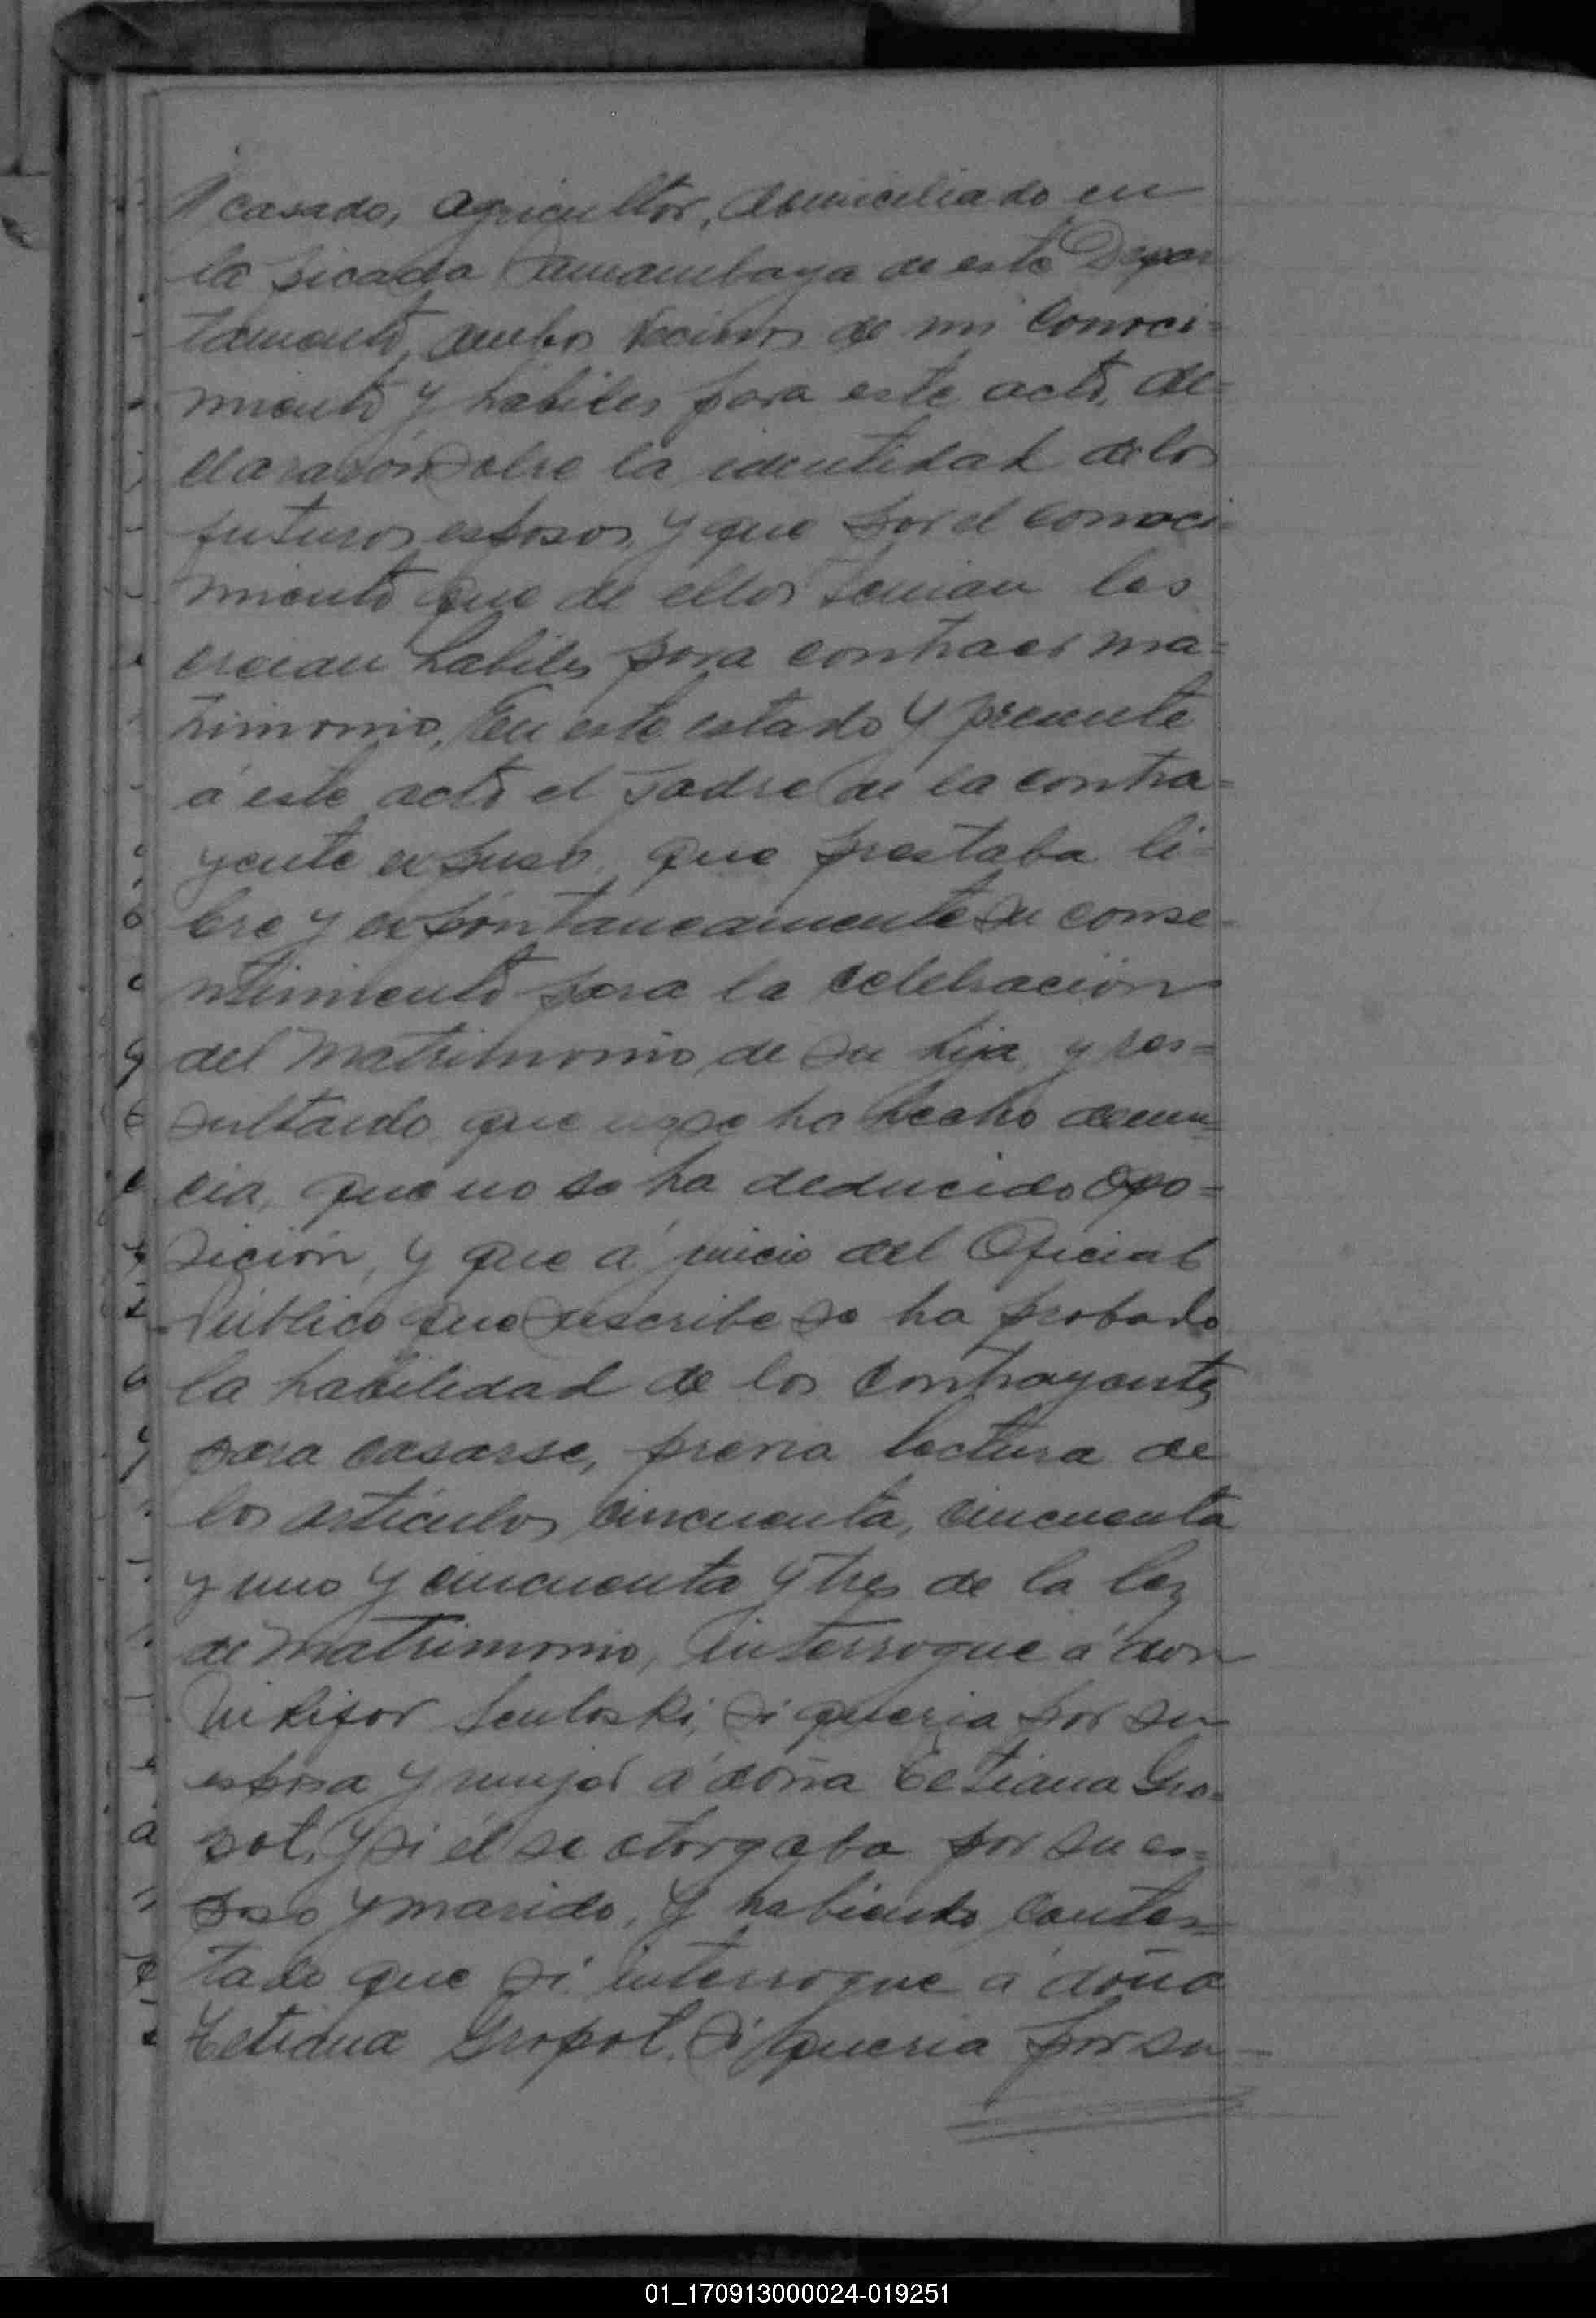 casado, agricultor, domiciliado en
la picada de este Depar
tamento, ambos vecinos de mi conoci=
miento y hábiles para este acto, de=
clararón sobre la identidad de los
futuros esposos, y que por el conoci=
miento que de ellos tenian los
creian habiles para contraer ma=
trimonio. En este estado y presente
á este acto el padre de la contra=
yente expuso, que prestaba li=
bre y expontaneamente su conse=
ntimiento para la celebración
del matrimonio de su hija, y res=
sultando que no se ha hecho denun=
cia, que no se ha deducido opo=
sición, y que á juicio del Oficial
Público que suscribe se ha probado
la habilidad de los contrayentes
para casarse, previa lectura de
los artículos cincuenta, cincuenta
y uno y cincuenta y tres de la ley
de matrimonio, interrogue á don
Nikifor si queria por su
esposa y mujer á doña Tetiana Gro=
pot, y si él se otorgaba por su es=
poso y marido, y habiendo contes=
tado que si, interrogue á doña
Tetiana Gropot, si queria por su
01_170913000024-019251